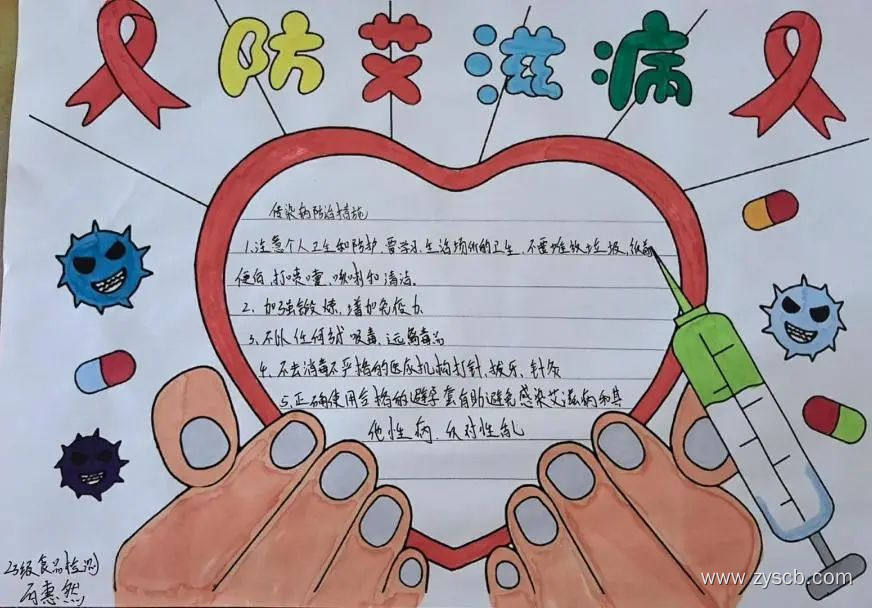 防艾滋病
传染病防治措施
1.注意个人卫生和防护,要学习、生活场所的卫生,不要堆放垃圾,饭前
便后,打喷嚏,咳嗽和清洁。
2、加强锻炼,增加免疫力
3、不以任何方式吸毒,远离毒品
4、不去消毒不严格的医疗机构打针、拔牙、针灸
5、正确使用合格的避孕套有助避免感染艾滋病和其
他性病、反对性乱
23级食品检测
石惠然
www.zyscb.com